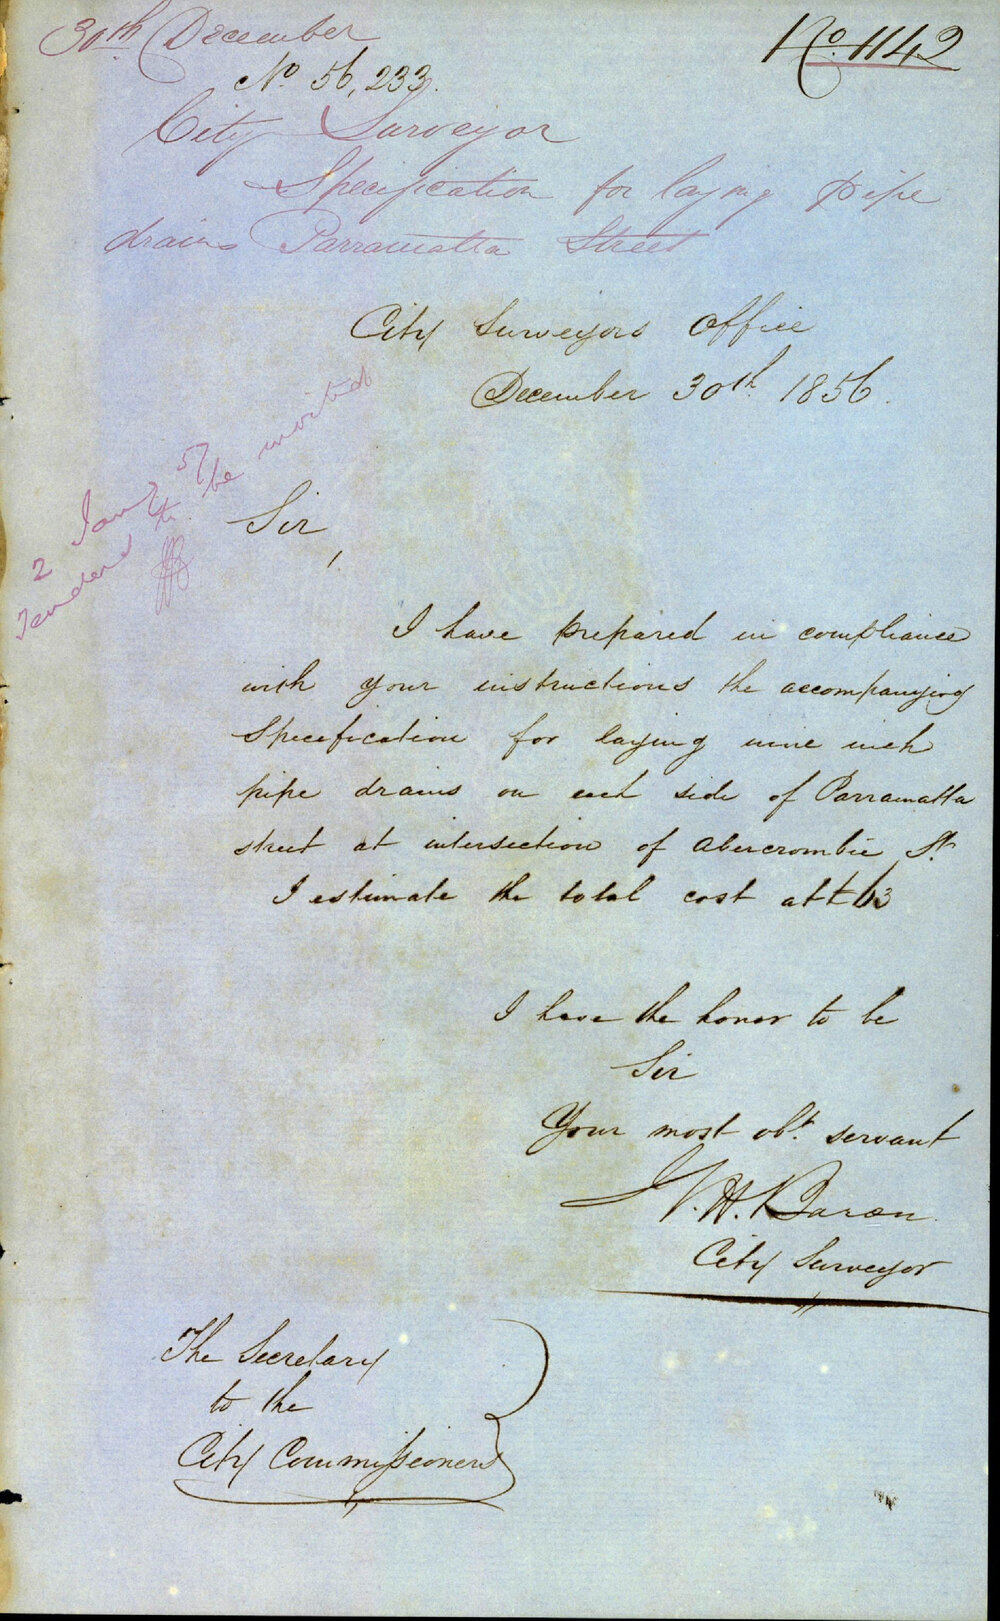 30th December
No. 1142
No. 56,233.
City Surveyor
Specification for laying pipe
drains Parramatta Street
City Surveyors Office
December 30th. 1856.
2 Jany 57
Tenders to be invited
Sir,
I have prepared in compliance
with your instructions the accompanying
Specification for laying nine inch
pipe drains on each side of Parramatta
street at intersection of Abercrombie St.
I estimate the total cost at £63
I have the honor to be
Sir
Your most obt. servant
H. Baron
City Surveyor
The Secretary
to the
City Commissioners